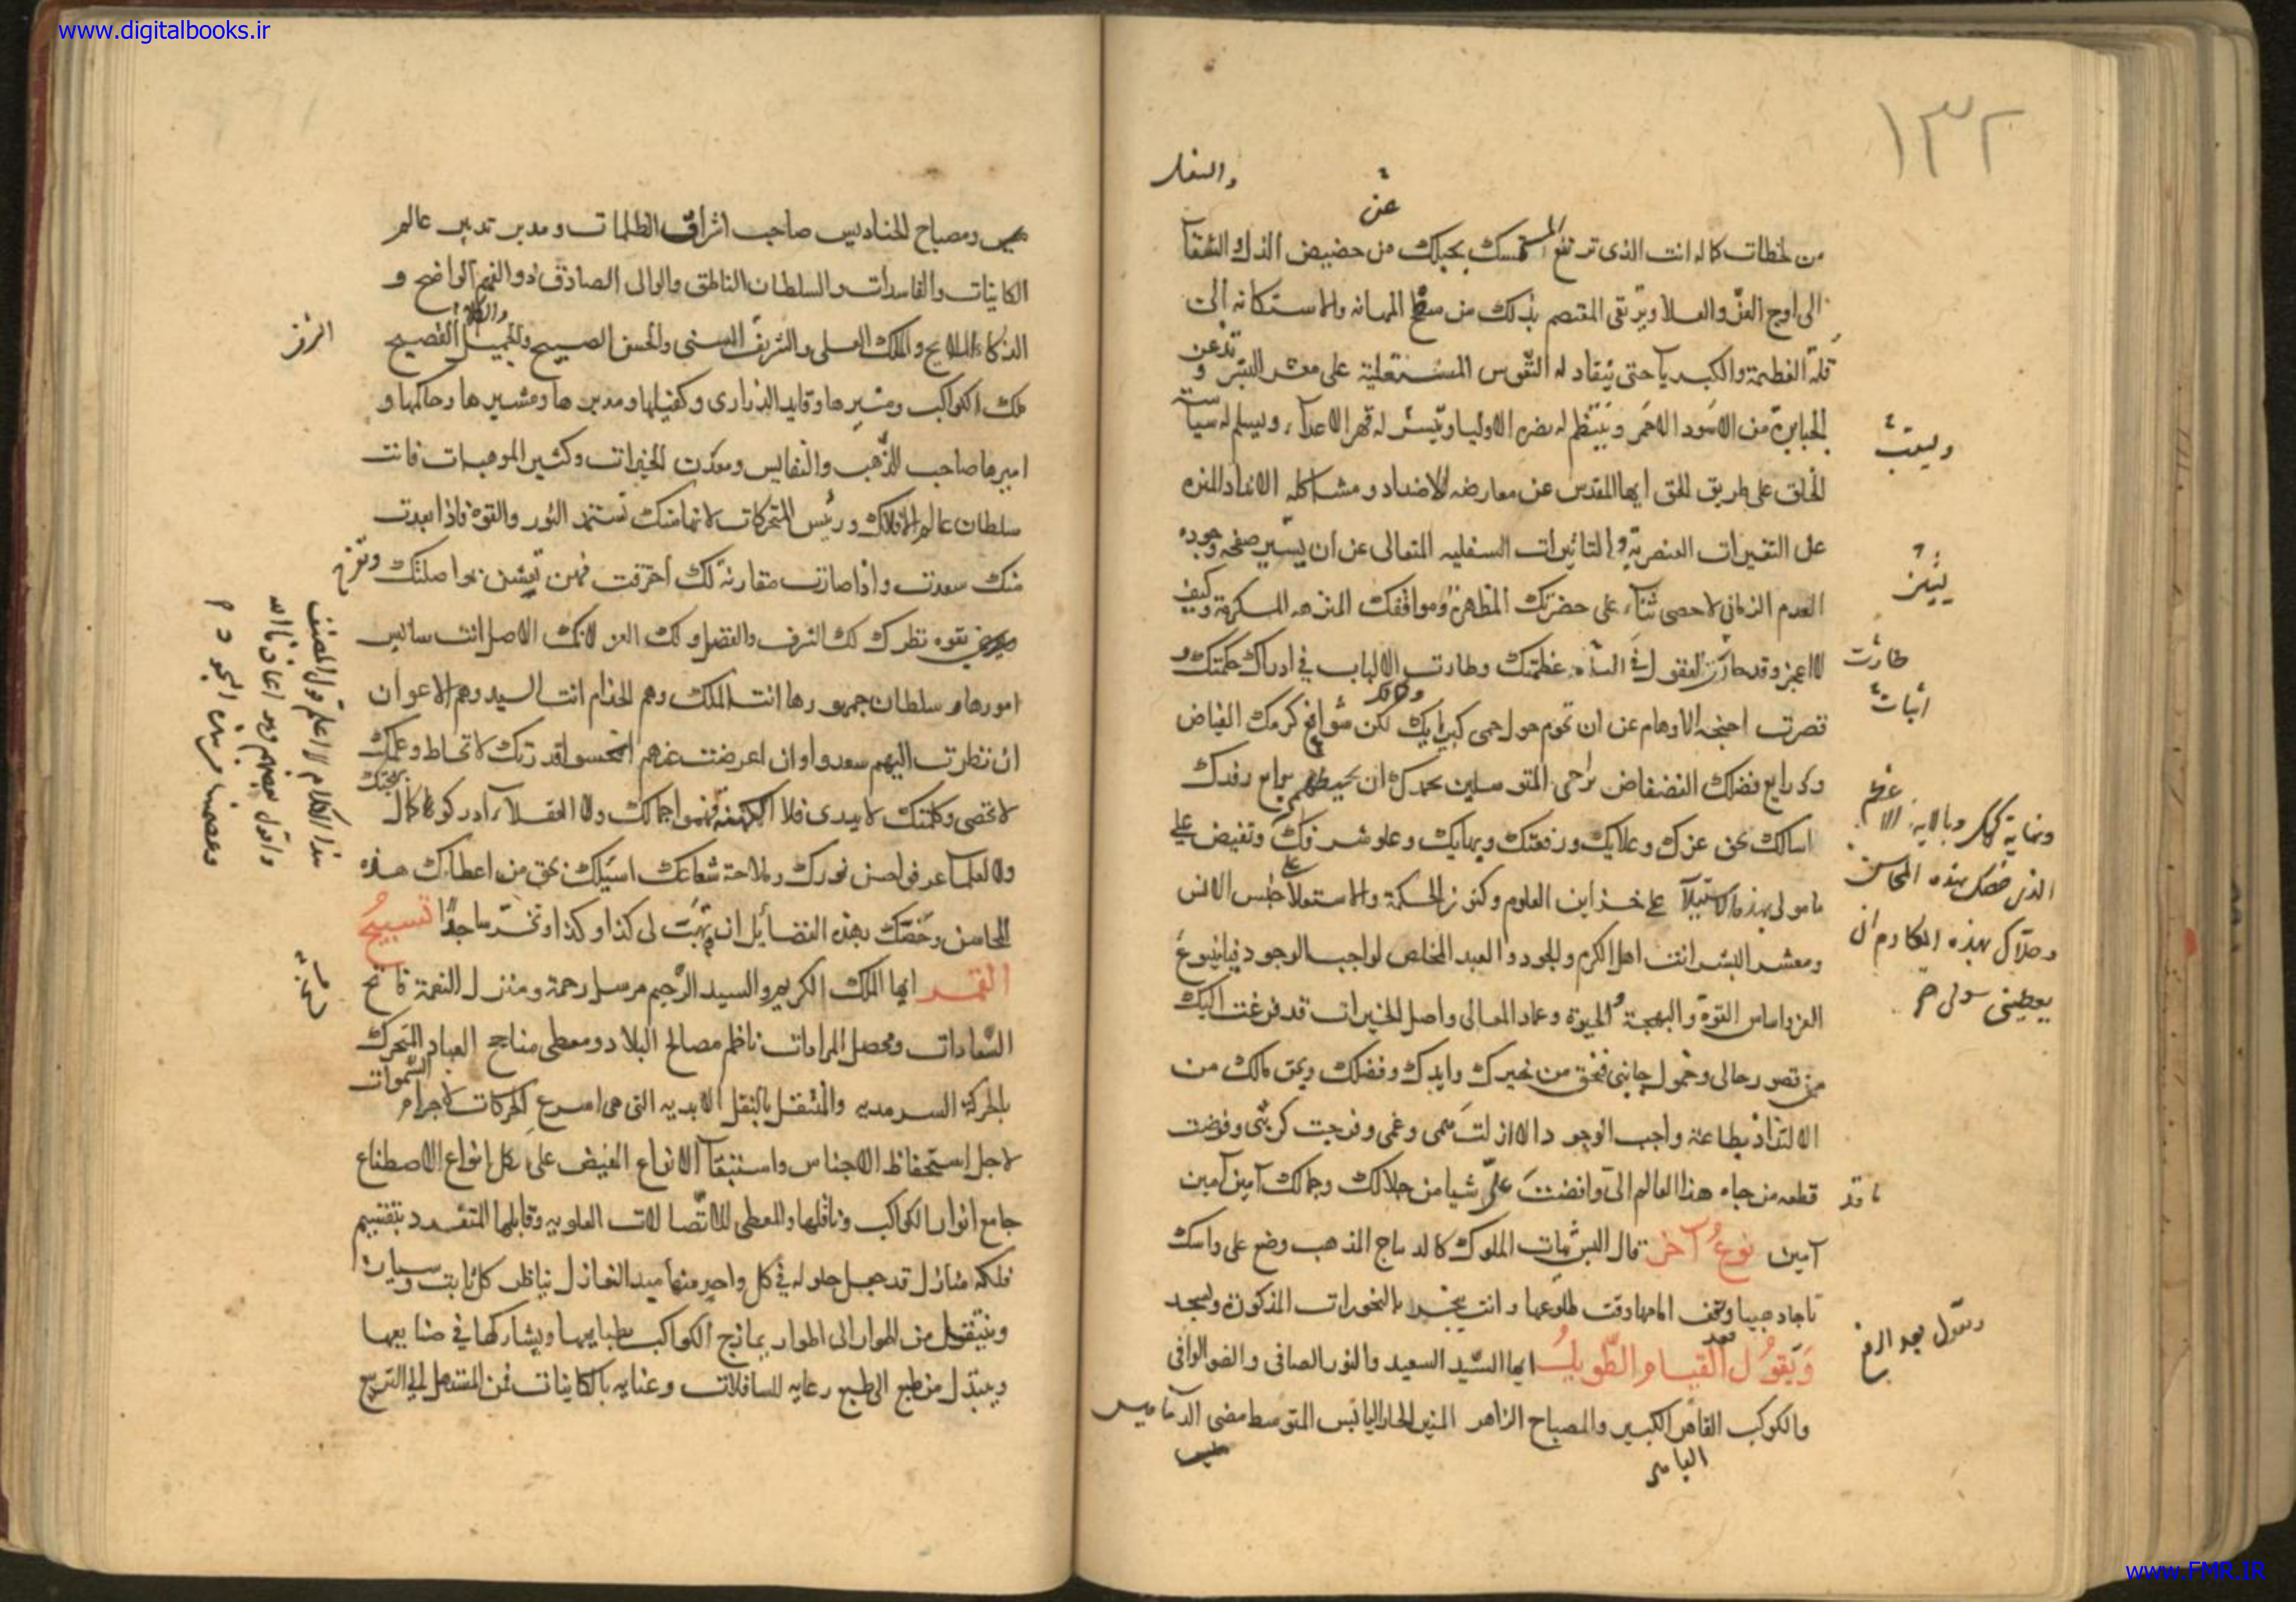 www.digitalbooks.ir
١٣٢
والسفل
عن
من لحظات كماله انت الذى ترتفع المستمسك بحبلك من حضيض الذل والشقآ
الى اوج العزّ والعلا ويرتقى المعتصم بذلك من سطح المهانه والاستكانه الى
قلة العظمة والكبريآ حتى ينقاد له النّفوس المستعلية على معشر البشر وتذعن
الجبابرة من الاسود الاحمر وينتظم له نصرة الاوليا ويتيسّر له قهر الاعدآء ويسلم له سياسة
ويسبب
الخلق على طريق الحق ايها المقدس عن معارضه الاضداد ومشاكله الانداد المنزه
على التغيرات العنصريّة والتاثيرات السفليه المتعالى عن ان يسير صفحه وجوده
العدم الزمانى لا احصى ثنآء على حضرتك المطهرة ومواقفك المنزهه المكرمة وكيف
لا اعجز وقد حارت العقول فى اثناء عظمتك وطارت الالباب فى ادراك حكمتك و
طارت
اثبات
قصرت اجنحه الاوهام عن ان تحوم حول حمى كبريايك لكن شوافع كرمك الفياض
وذرايع فضلك الفضفاض تراحى المتوسلين بحمدك ان يحيطهم ببدايع رفدك
اسالك بحق عزك وعلايك ورفعتك وبهايك وعلو شرفك وتفيض على
ونهاية كمالك وبالايه الاعظم
الذى خصك بهذه المحاسن
وحلاك بهذه المكارم ان
يعطينى سولى
مامولى بهذه الاستيلآ على خزاين العلوم وكنوز الحكمة والاستعلا على جنس الانس
ومعشر البشر انت اهل الكرم والجود والعبد المخلص لواجب الوجود فيا ينبوع
العز واساس القوة والبهجة والحيوة وعماد المعالى واصل الخيرات قد فرغت اليك
من قصور حالى وخمول جانبى فبحق من نحيرك وايدك وفضلك وبحق مالك من
الالتذاذ بطاعة واجب الوجود الا ازلت همى وغمى وفرجت كربتى وفوضت
قطعه من جاه هذا العالم الىّ وافضت علىّ شيا من جلالك وجمالك آمين آمين
آمين نوع آخر قال البس ثياب الملوك كالديباج المذهب وضع على راسك
تاجا ذهبيا وقف امامها وقت طلوعها وانت يبخر بالبخورات المذكورة واسجد
ويقول بعد القيام الطويل ايها السّيد السعيد والنور الصافى والضو الوافى
ويقول بعد الرفع
والكوكب القاهر الكبير والمصباح الزاهر المنير الحار اليابس المتوسط مضى الدياميس
الباهر
ومصباح الحناديس صاحب اشراق الظلمات ومدبر تدبير عالم
الكاينات والفاسدات والسلطان الناطق والوالى الصادق ذو الفهم الواضح و
الذكاء اللايح والملك العلى والشريف السنى والحسن الصبيح والجميل الفصيح
الشرف
ملك الكواكب ومنيرها وقايد الدرارى وكفيلها ومدبرها ومشيرها وحاكمها و
اميرها صاحب الذّهب والنفايس ومعدن الخيرات وكثير الموهبات فانت
سلطان عالم الافلاك ورئيس المتحركات لانها منك تستمد النور والقوة فاذا بعدت
منك سعدت واذا صارت مقارنة لك احترقت فهن تعيش بمواصلتك وتفرح
بقوه نظرك لك الشرف والفضل ولك العز لانك الاصل انت سايس
امورها وسلطان جمهورها انت الملك وهم الخدام انت السيد وهم الاعوان
ان نظرت اليهم سعدوا وان اعرضت عنهم انتحسوا قدرتك لا تحاط وعلمك
لا تحصى وكلمتك لا يبدى فلا الكهنة فهموا جمالك ولا العقلآء ادركوا كمال بهجتك
ولا العلمآ عرفوا حسن نورك وملاحة شعاعك اسئلك بحق من اعطاك هذه
المحاسن وخصّك بهذه الفضايل ان تهب لى كذا وكذا وتخرّ ساجدًا تسبيحُ
القمر ايها الملك الكريم والسيد الرّحيم مرسل رحمة ومنزل النعمة فاتح
السّعادات ومحصل المرادات ناظم مصالح البلاد ومعطى مناجح العباد المتحرك
بالحركة السرمديه والمتنقل بالنقل الابديه التى هى اسرع الحركات لاجرام السّموات
لاجل استحفاظ الاجناس واستبقآ الانواع الفيض على كل انواع الاصطناع
جامع انوار الكواكب وناقلها والمعطى للاتّصالات العلويه وقابلها المتفرد بتقسيم
فلكه منازل قد جعل حلوله فى كل واحد منها مبدا لنمازل يناظر كل ثابت وسيارة
وينتقل من اطوار الى اطوار يمازج الكواكب بطبايعها ويشاركها فى صنايعها
ويتبدل من طبع الى طبع رعايه للسافلات وعنايه بالكاينات فمن المستهل الى التربيع
هذا الكلام لا اعلم قول المصنف
www.FMR.IR